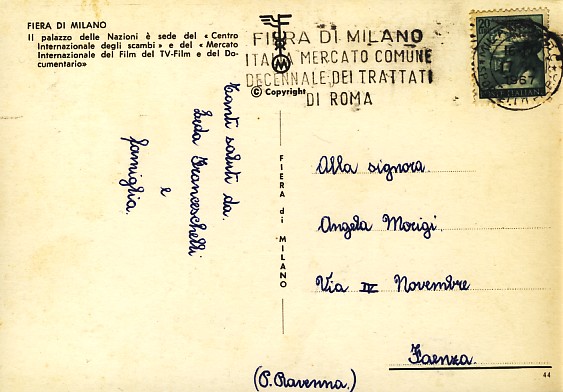 FIERA DI MILANO
Il palazzo delle Nazioni è sede del « Centro
Internazionale degli scambi » e del « Mercato
Internazionale del Film del TV-Film e del Do-
cumentario»
FIERA DI MILANO
MERCATO COMUNE
DECENNALE DEI TRATTATI
DI ROMA
© Copyright
20
1967
Tanti saluti da
Leda Franceschelli
e
famiglia.
FIERA di MILANO
Alla signora.
Angela Morigi.
Via IV Novembre
Faenza.
(P. Ravenna.)
44